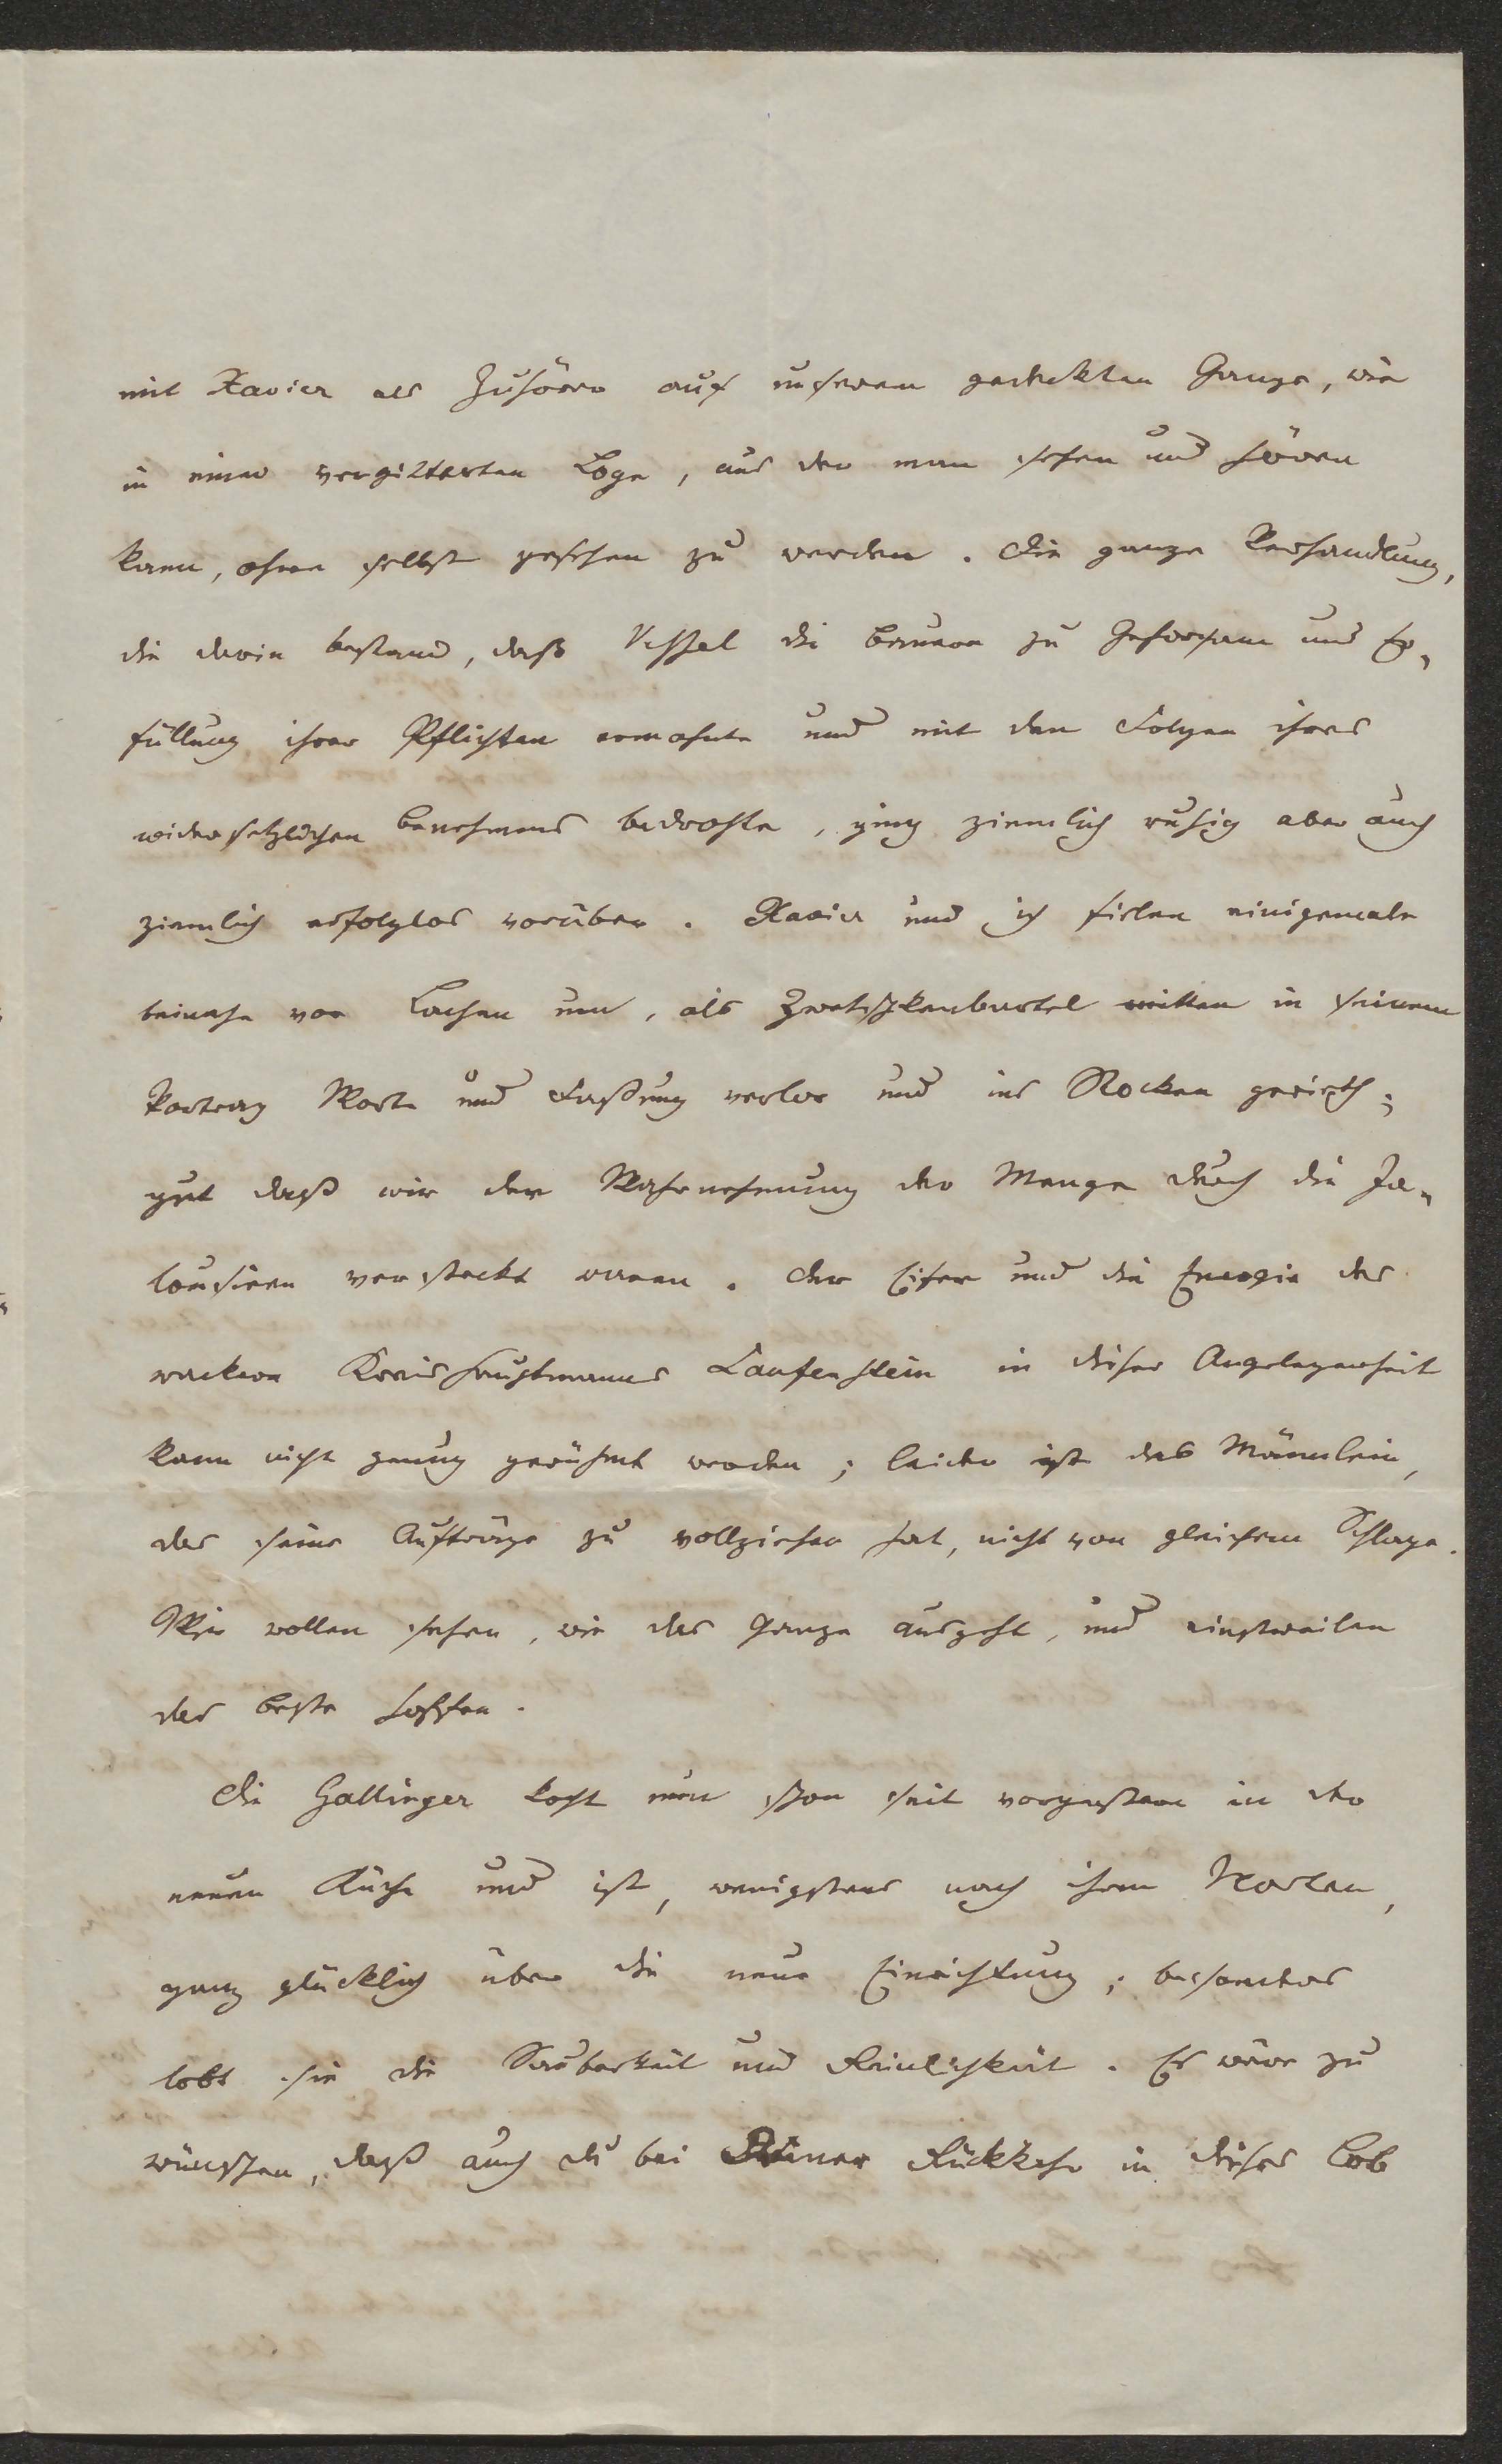 mit Xavier als Zuhörer auf unserem gedeckten Gange, wie
in einer vergitterten Loge, aus der man sehen und hören
kann, ohne selbst gesehen zu werden. Die ganze Verhandlung,
die darin bestand, daß die Bauern zu Gehorsam und Er-
füllung ihrer Pflichten ermahnte und mit den Folgen ihres
widersetzlichen Benehmens bedrohte, ging ziemlich ruhig aber auch
ziemlich erfolglos vorüber. Xavier und ich fielen einigemale
beinahe vor Lachen um, als Zwetschkenbartel mitten in seinem
Vortrag Worte und Faßung verlor und ins Stocken gerieth;
gut daß wir der Wahrnehmung der Menge durch die Ja-
lousieen versteckt waren. Der Eifer und die Energie des
wackern Kreishauptmanns Laufenstein in dieser Angelegenheit
kann nicht genug gerühmt werden; leider ist das Männlein,
das seine Aufträge zu vollziehen hat, nicht von gleichem Schlage.
Wir wollen sehen, wie das Ganze ausgeht, und einstweilen
das beste hoffen.
Die Gallinger kocht nun schon seit vorgestern in der
neuen Küche und ist, wenigstens nach ihren Worten,
ganz glücklich über die neue Einrichtung; besonders
lobt sie die Sauberkeit und Reinlichkeit. Es wäre zu
wünschen, daß auch du bei Deiner Rückkehr in dieses Lob